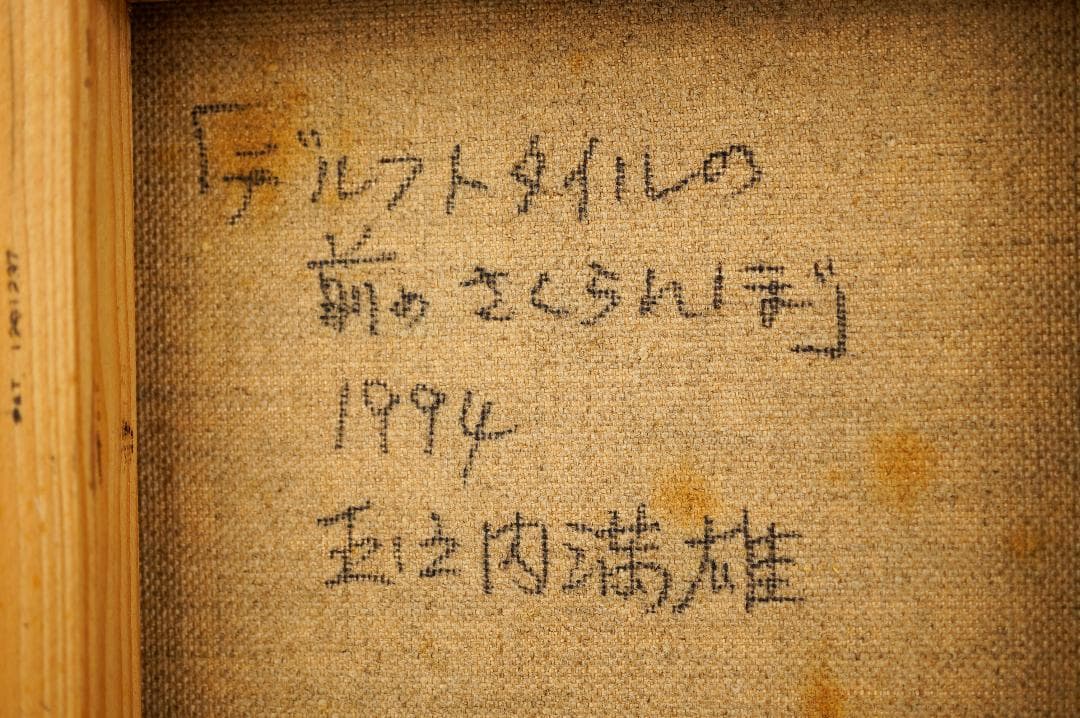 「デルフトタイルの
前のさくらんぼ」
1994
玉之内満雄